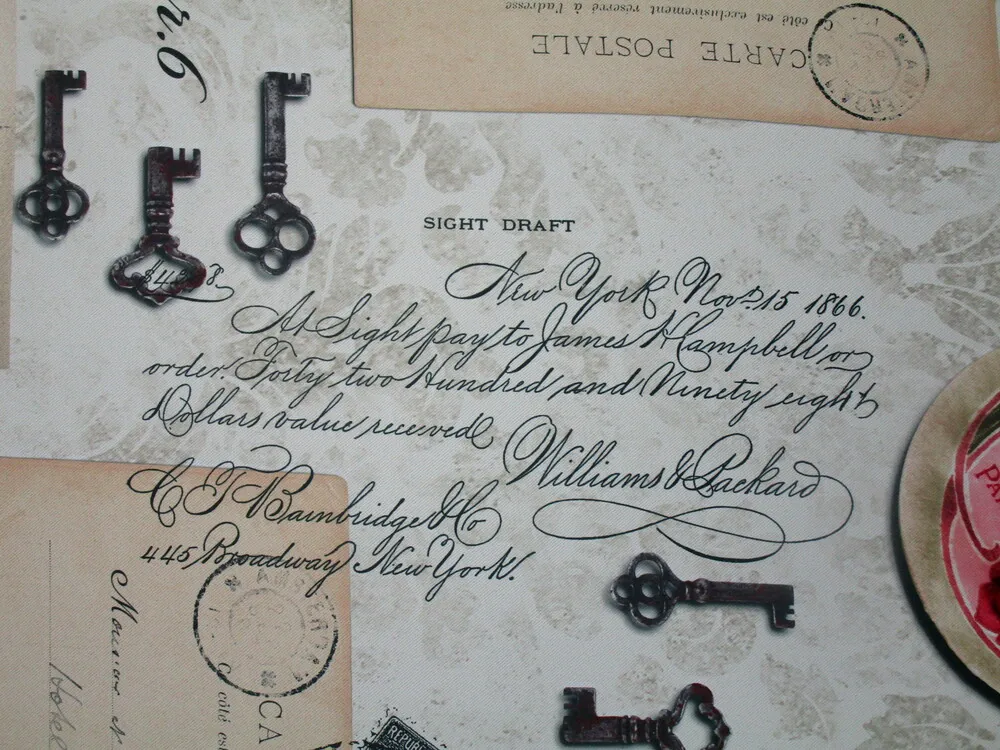 r.6
C côté est exclusivement reservé à l'adresse
CARTE POSTALE
AMSTERDA
SIGHT DRAFT
New York Nov. 15 1866.
At Sight pay to James H Campbell or
order Forty two Hundred and Ninety eight
Dollars value received
Williams & Packard
C T Bainbridge & Co
445 Broadway New York.
AMSTERDA
Hotel
C côté es
CA
REPUB
PA